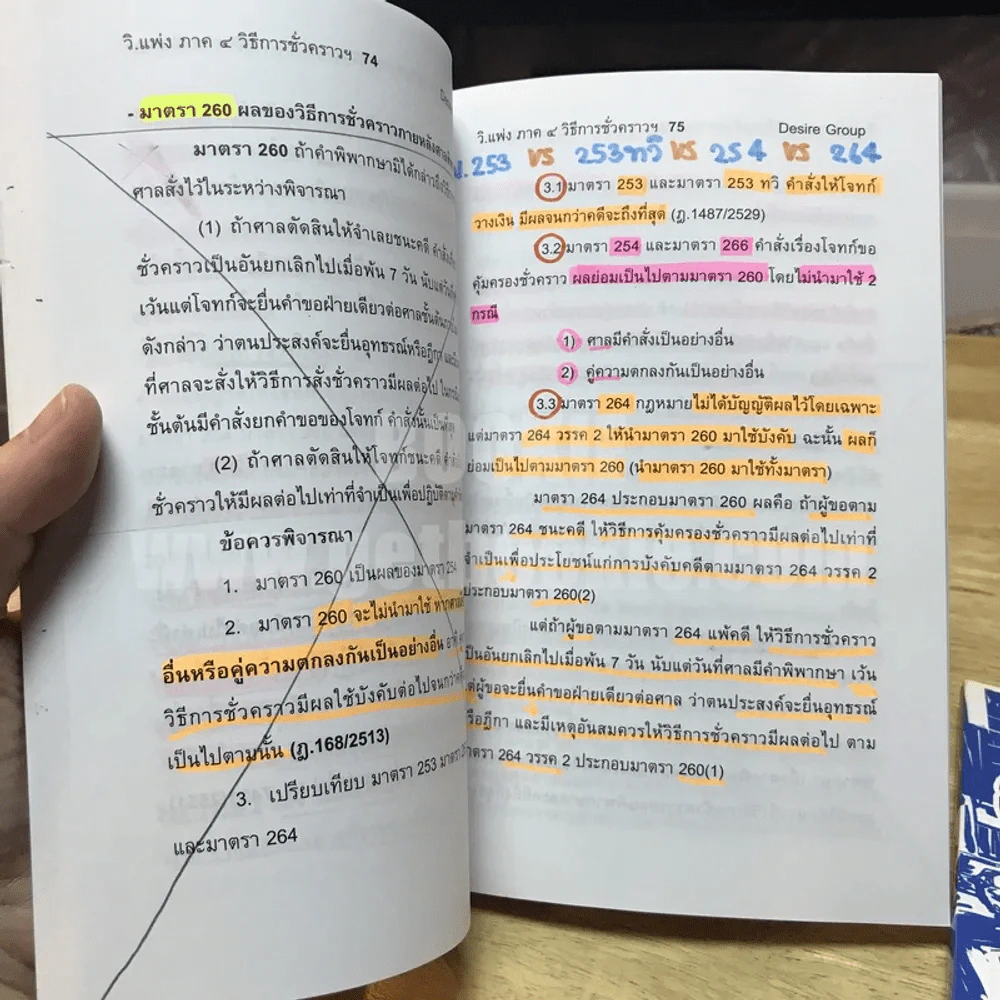 วิ.แพ่ง ภาค ๔ วิธีการชั่วคราวฯ 74
- มาตรา 260 ผลของวิธีการชั่วคราวภายหลัง
มาตรา 260 ถ้าคำพิพากษามิได้กล่าวถึง
ศาลสั่งไว้ในระหว่างพิจารณา
(1) ถ้าศาลตัดสินให้จำเลยชนะคดี คำสั่ง
ชั่วคราวเป็นอันยกเลิกไปเมื่อพ้น 7 วัน นับแต่วัน
เว้นแต่โจทก์จะยื่นคำขอฝ่ายเดียวต่อศาลชั้นต้น
ดังกล่าว ว่าตนประสงค์จะยื่นอุทธรณ์หรือฎีกา
ที่ศาลจะสั่งให้วิธีการสั่งชั่วคราวมีผลต่อไป
ชั้นต้นมีคำสั่งยกคำขอของโจทก์ คำสั่งนั้นเป็น
(2) ถ้าศาลตัดสินให้โจทก์ชนะคดี
ชั่วคราวให้มีผลต่อไปเท่าที่จำเป็นเพื่อปฏิบัติตาม
ข้อควรพิจารณา
1. มาตรา 260 เป็นผลของมาตรา 254
2. มาตรา 260 จะไม่นำมาใช้
อื่นหรือคู่ความตกลงกันเป็นอย่างอื่น อาทิ
วิธีการชั่วคราวมีผลใช้บังคับต่อไปจนกว่า
เป็นไปตามนั้น (ฎ.168/2513)
3. เปรียบเทียบ มาตรา 253 มาตรา
และมาตรา 264
วิ.แพ่ง ภาค ๔ วิธีการชั่วคราวฯ 75 Desire Group
ม.253 vs 253ทวิ vs 254 vs 264
3.1 มาตรา 253 และมาตรา 253 ทวิ คำสั่งให้โจทก์
วางเงิน มีผลจนกว่าคดีจะถึงที่สุด (ฎ.1487/2529)
3.2 มาตรา 254 และมาตรา 266 คำสั่งเรื่องโจทก์ขอ
คุ้มครองชั่วคราว ผลย่อมเป็นไปตามมาตรา 260 โดยไม่นำมาใช้ 2
กรณี
1) ศาลมีคำสั่งเป็นอย่างอื่น
2) คู่ความตกลงกันเป็นอย่างอื่น
3.3 มาตรา 264 กฎหมายไม่ได้บัญญัติผลไว้โดยเฉพาะ
แต่มาตรา 264 วรรค 2 ให้นำมาตรา 260 มาใช้บังคับ ฉะนั้น ผลก็
ย่อมเป็นไปตามมาตรา 260 (นำมาตรา 260 มาใช้ทั้งมาตรา)
มาตรา 264 ประกอบมาตรา 260 ผลคือ ถ้าผู้ขอตาม
มาตรา 264 ชนะคดี ให้วิธีการคุ้มครองชั่วคราวมีผลต่อไปเท่าที่
จำเป็นเพื่อประโยชน์แก่การบังคับคดีตามมาตรา 264 วรรค 2
ประกอบมาตรา 260(2)
แต่ถ้าผู้ขอตามมาตรา 264 แพ้คดี ให้วิธีการชั่วคราว
เป็นอันยกเลิกไปเมื่อพ้น 7 วัน นับแต่วันที่ศาลมีคำพิพากษา เว้น
แต่ผู้ขอจะยื่นคำขอฝ่ายเดียวต่อศาล ว่าตนประสงค์จะยื่นอุทธรณ์
หรือฎีกา และมีเหตุอันสมควรให้วิธีการชั่วคราวมีผลต่อไป ตาม
มาตรา 264 วรรค 2 ประกอบมาตรา 260(1)